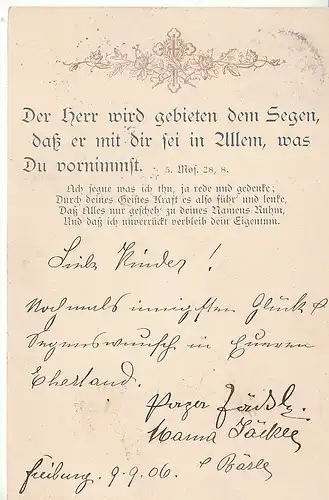 Der Herr wird gebieten dem Segen,
daß er mit dir sei in Allem, was
Du vornimmst. 5. Mos. 28, 8.
Ach segne was ich thu, ja rede und gedenke;
Durch deines Geistes Kraft es also führ' und lenke,
Daß Alles nur gescheh' zu deines Namens Ruhm,
Und daß ich unverrückt verbleib dein Eigentum.
Liebe Kinder!
Nochmals innigsten Glück &
Segenswunsch in Eueren
Ehestand.
Papa
Mama Jäckle
Freiburg. 9.9.06.